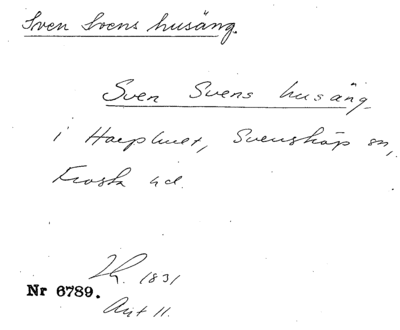 Sven Svens husäng.
Sven Svens husäng
i Harphult, Svensköp sn,
Frosta hd.
1831
Nr 6789.
Akt 11.